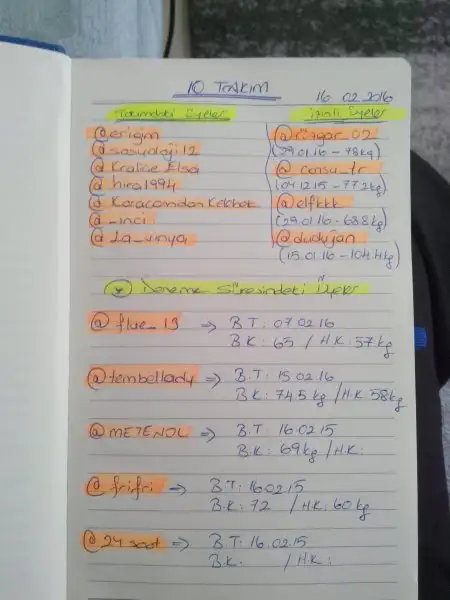 10 TAKIM
16 02 2016
Takımdaki Üyeler
İzinli Üyeler
@erigim
@sosyoloji12
@Kralice Elsa
@hira1994
@KaracamdanKelebek
@_inci
@La_vinya
@rüzgar_02
(29.01.16 - 78kg)
@cansu_tr
(04.12.15 - 77.2kg)
@elfkkk
(29.01.16 - 68.8kg)
@dudujan
(15.01.16 - 104.4kg)
* Deneme Süresindeki Üyeler
@flue_19 => B.T: 07.02.16
B.K: 65 / H.K: 57kg
@tembellady => B.T: 15.02.16
B.K: 74.5 kg / H.K 58kg
@METENOL => B.T: 16.02.15
B.K: 69kg / H.K:
@frifri => B.T: 16.02.15
B.K: 72 / H.K: 60kg
@24 saat => B.T: 16.02.15
B.K: / H.K: